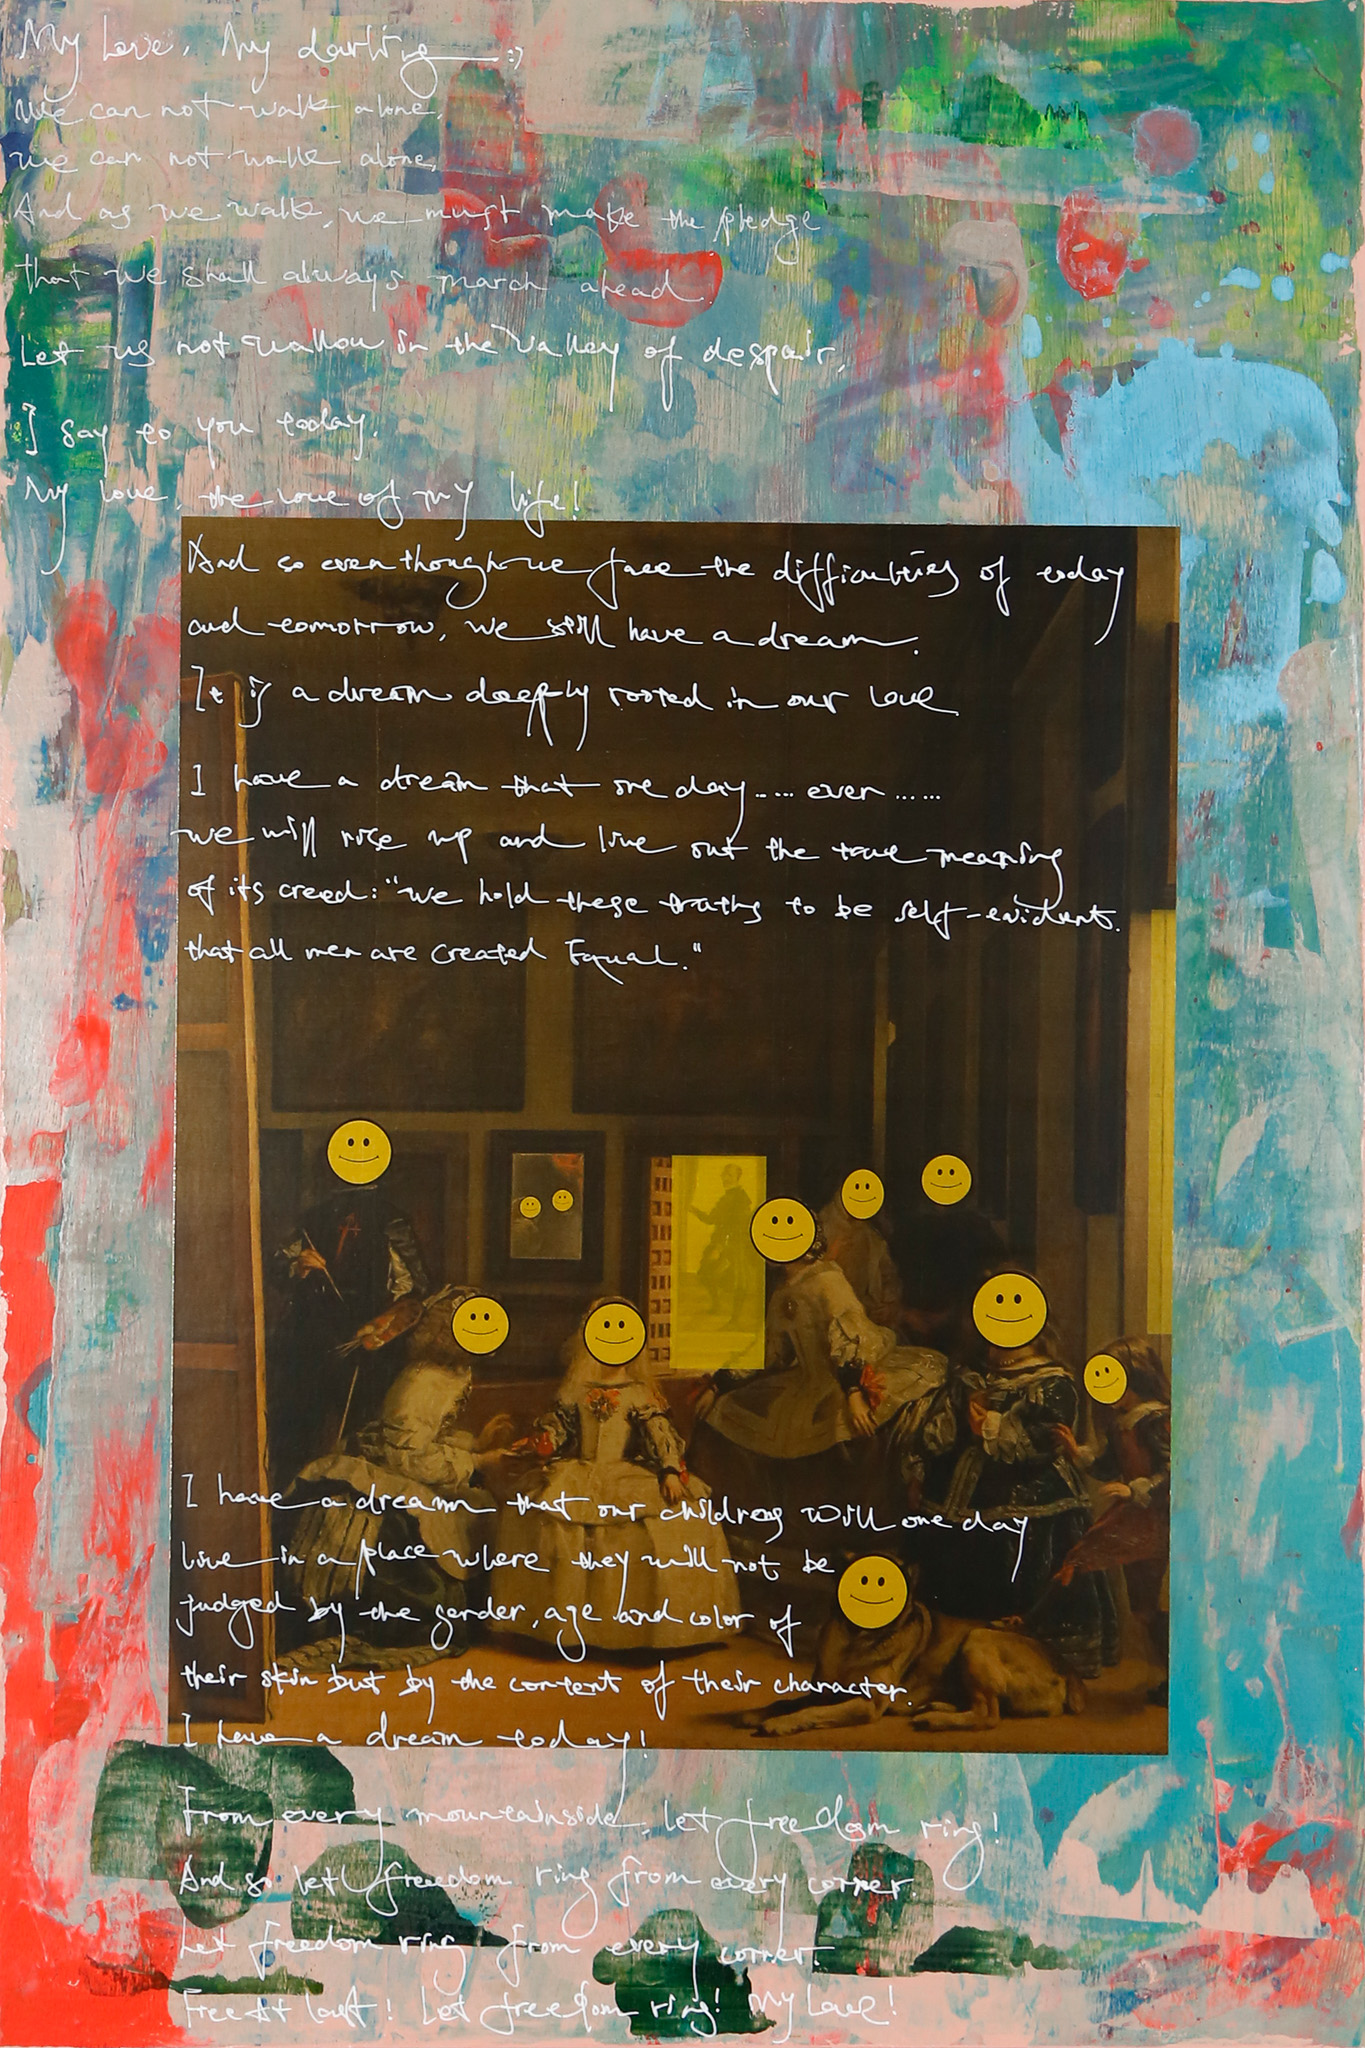 My Love, My darling :)
We can not walk alone,
we can not walk alone,
And as we walk, we must make the pledge
that we shall always march ahead.
Let us not wallow in the valley of despair,
I say to you today.
My love, the love of my life!
And so even though we face the difficulties of today
and tomorrow, we still have a dream.
It is a dream deeply rooted in our love.
I have a dream that one day...... ever......
we will rise up and live out the true meaning
of its creed: "we hold these truths to be self-evident.
that all men are created Equal."
I have a dream that our childrens will one day
live in a place where they will not be
judged by the gender, age and color of
their skin but by the content of their character.
I have a dream today!
From every mountainside, let freedom ring!
And so let freedom ring from every corner.
Let freedom ring from every corner.
Free at last! Let freedom ring! My Love!